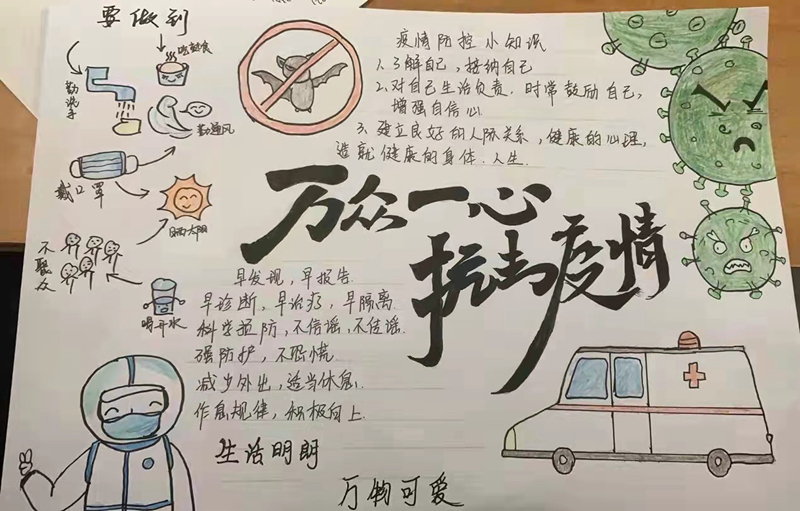 要做到
吃熟食
勤洗手
勤通风
戴口罩
晒太阳
不聚众
喝开水
疫情防控小知识
1.了解自己,接纳自己
2.对自己生活负责.时常鼓励自己,
增强自信心.
3.建立良好的人际关系,健康的心理,
造就健康的身体.人生.
万众一心
抗击疫情
早发现,早报告.
早诊断,早治疗,早隔离.
科学预防,不信谣,不传谣.
强防护,不恐慌.
减少外出,适当休息.
作息规律,积极向上.
生活明朗
万物可爱